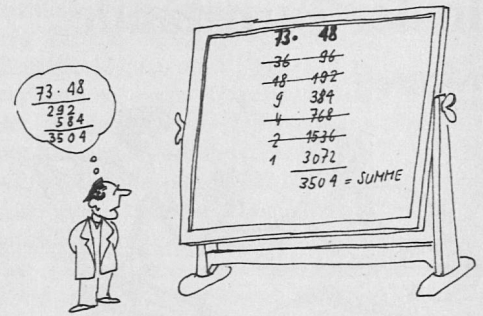 73 · 48
292
584
3504
73 · 48
36 96
18 192
9 384
4 768
2 1536
1 3072
3504 = SUMME